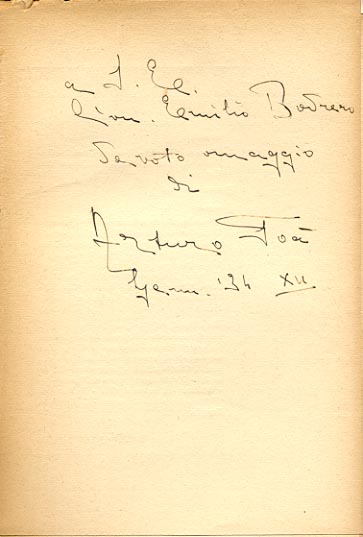 a S. E.
l'on. Emilio Bodrero
devoto omaggio
di
Arturo Foà
Genn. '34 XII